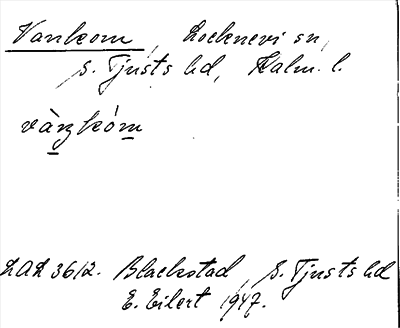 Vankom, Locknevi sn,
S. Tjusts hd, Kalm. l.
vàŋkóm
LAL 3612. Blackstad, S. Tjusts hd
E. Eilert 1947.